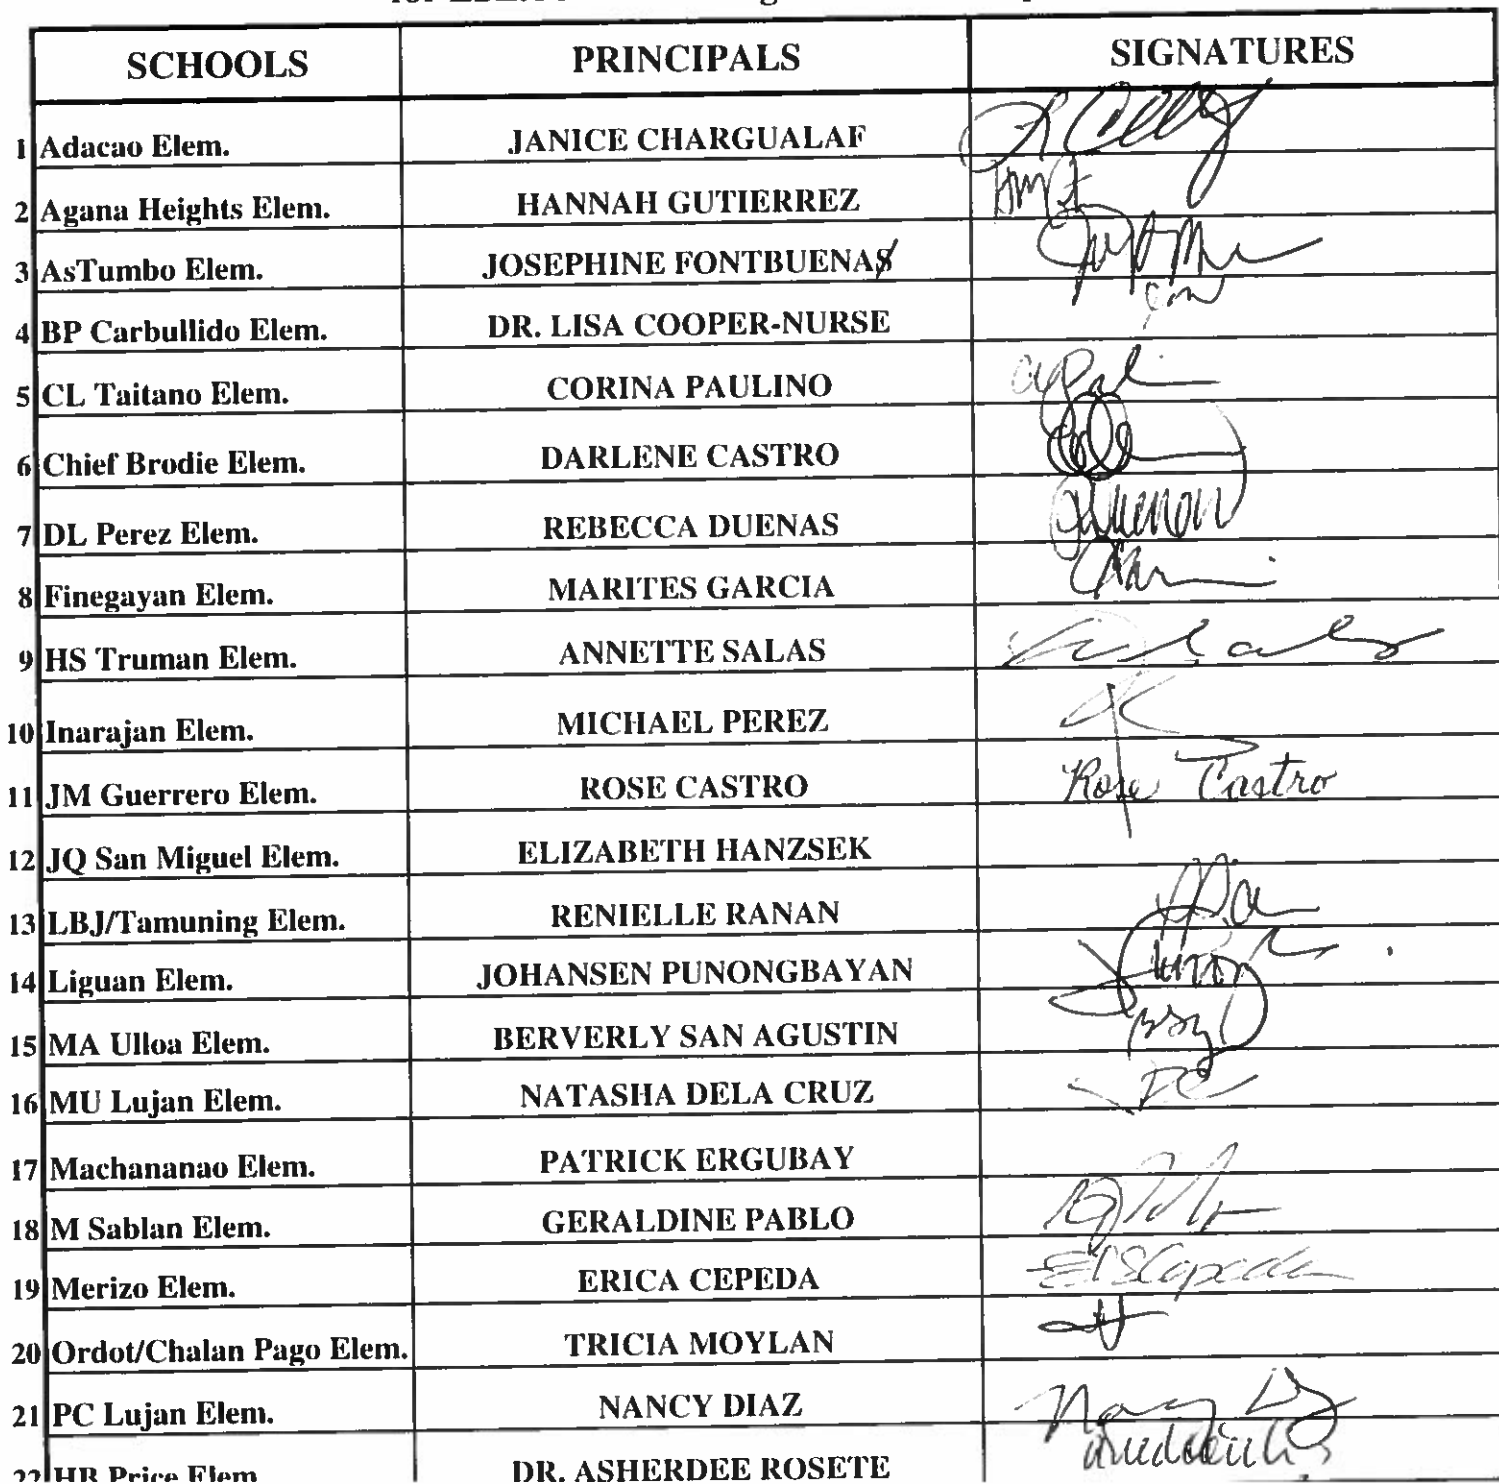 SCHOOLS PRINCIPALS SIGNATURES
1 Adacao Elem. JANICE CHARGUALAF
2 Agana Heights Elem. HANNAH GUTIERREZ
3 AsTumbo Elem. JOSEPHINE FONTBUENAS
4 BP Carbullido Elem. DR. LISA COOPER-NURSE
5 CL Taitano Elem. CORINA PAULINO
6 Chief Brodie Elem. DARLENE CASTRO
7 DL Perez Elem. REBECCA DUENAS
8 Finegayan Elem. MARITES GARCIA
9 HS Truman Elem. ANNETTE SALAS
10 Inarajan Elem. MICHAEL PEREZ
11 JM Guerrero Elem. ROSE CASTRO Rose Castro
12 JQ San Miguel Elem. ELIZABETH HANZSEK
13 LBJ/Tamuning Elem. RENIELLE RANAN
14 Liguan Elem. JOHANSEN PUNONGBAYAN
15 MA Ulloa Elem. BERVERLY SAN AGUSTIN
16 MU Lujan Elem. NATASHA DELA CRUZ
17 Machananao Elem. PATRICK ERGUBAY
18 M Sablan Elem. GERALDINE PABLO
19 Merizo Elem. ERICA CEPEDA
20 Ordot/Chalan Pago Elem. TRICIA MOYLAN
21 PC Lujan Elem. NANCY DIAZ
22 HB Price Elem DR. ASHERDEE ROSETE